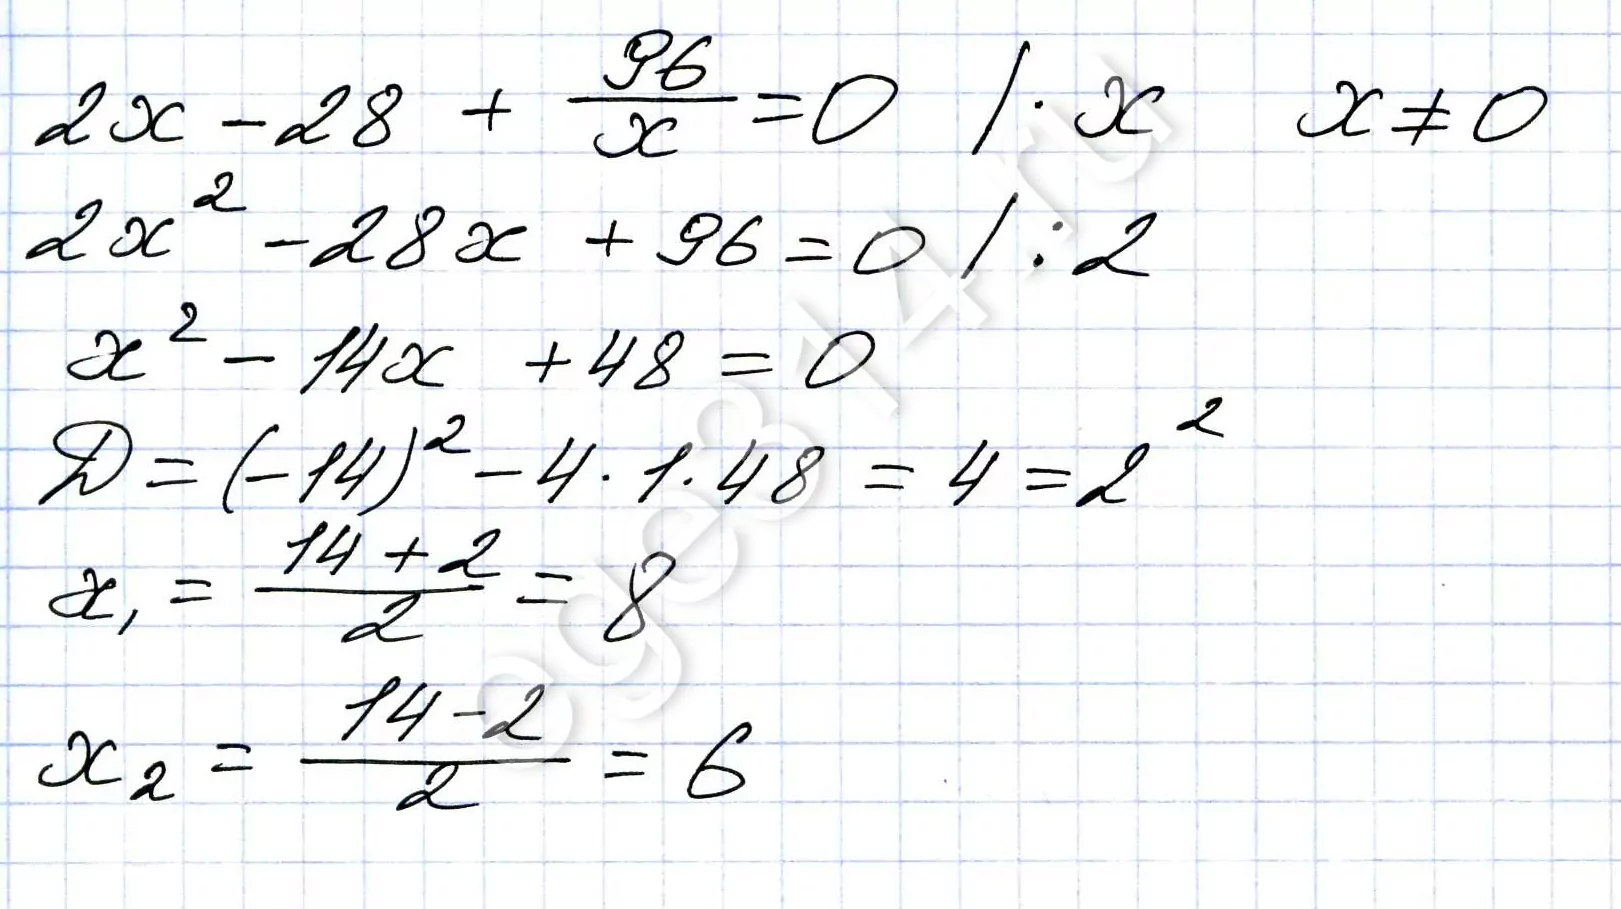 2x - 28 + 96/x = 0 / · x x ≠ 0
2x² - 28x + 96 = 0 / : 2
x² - 14x + 48 = 0
D = (-14)² - 4 · 1 · 48 = 4 = 2²
x₁ = (14 + 2)/2 = 8
x₂ = (14 - 2)/2 = 6
oge314.ru